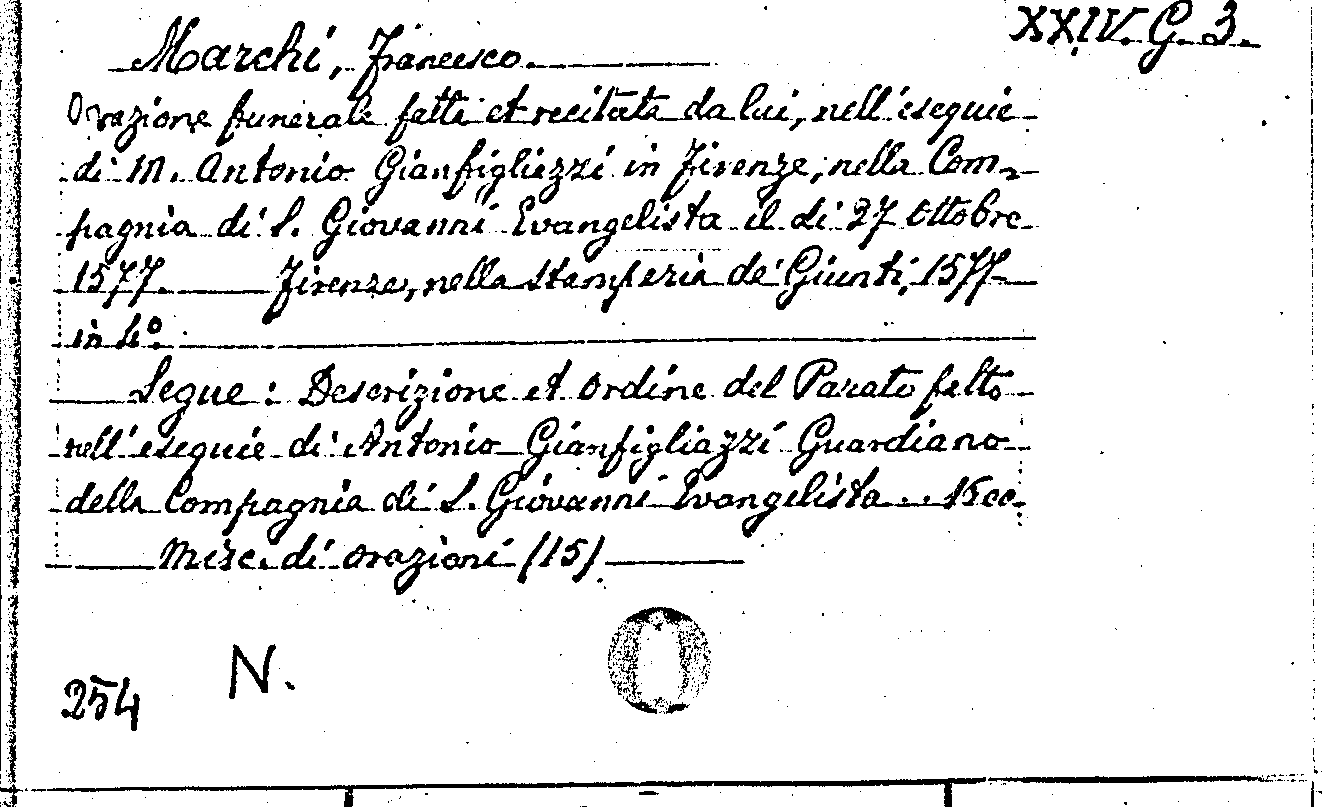 XXIV. G. 3.
Marchi, Francesco.
Orazione funerale fatta et recitata da lui, nell'esequie
di M. Antonio Gianfigliazzi in Firenze, nella Com-
pagnia di S. Giovanni Evangelista il di 27 Ottobre
1577. Firenze, nella stamperia de' Giunti, 1577
in 4°.
Segue: Descrizione et ordine del Parato fatto
nell'esequie di Antonio Gianfigliazzi Guardiano
della Compagnia di S. Giovanni Evangelista..
Misc. di orazioni (15)
N.
254